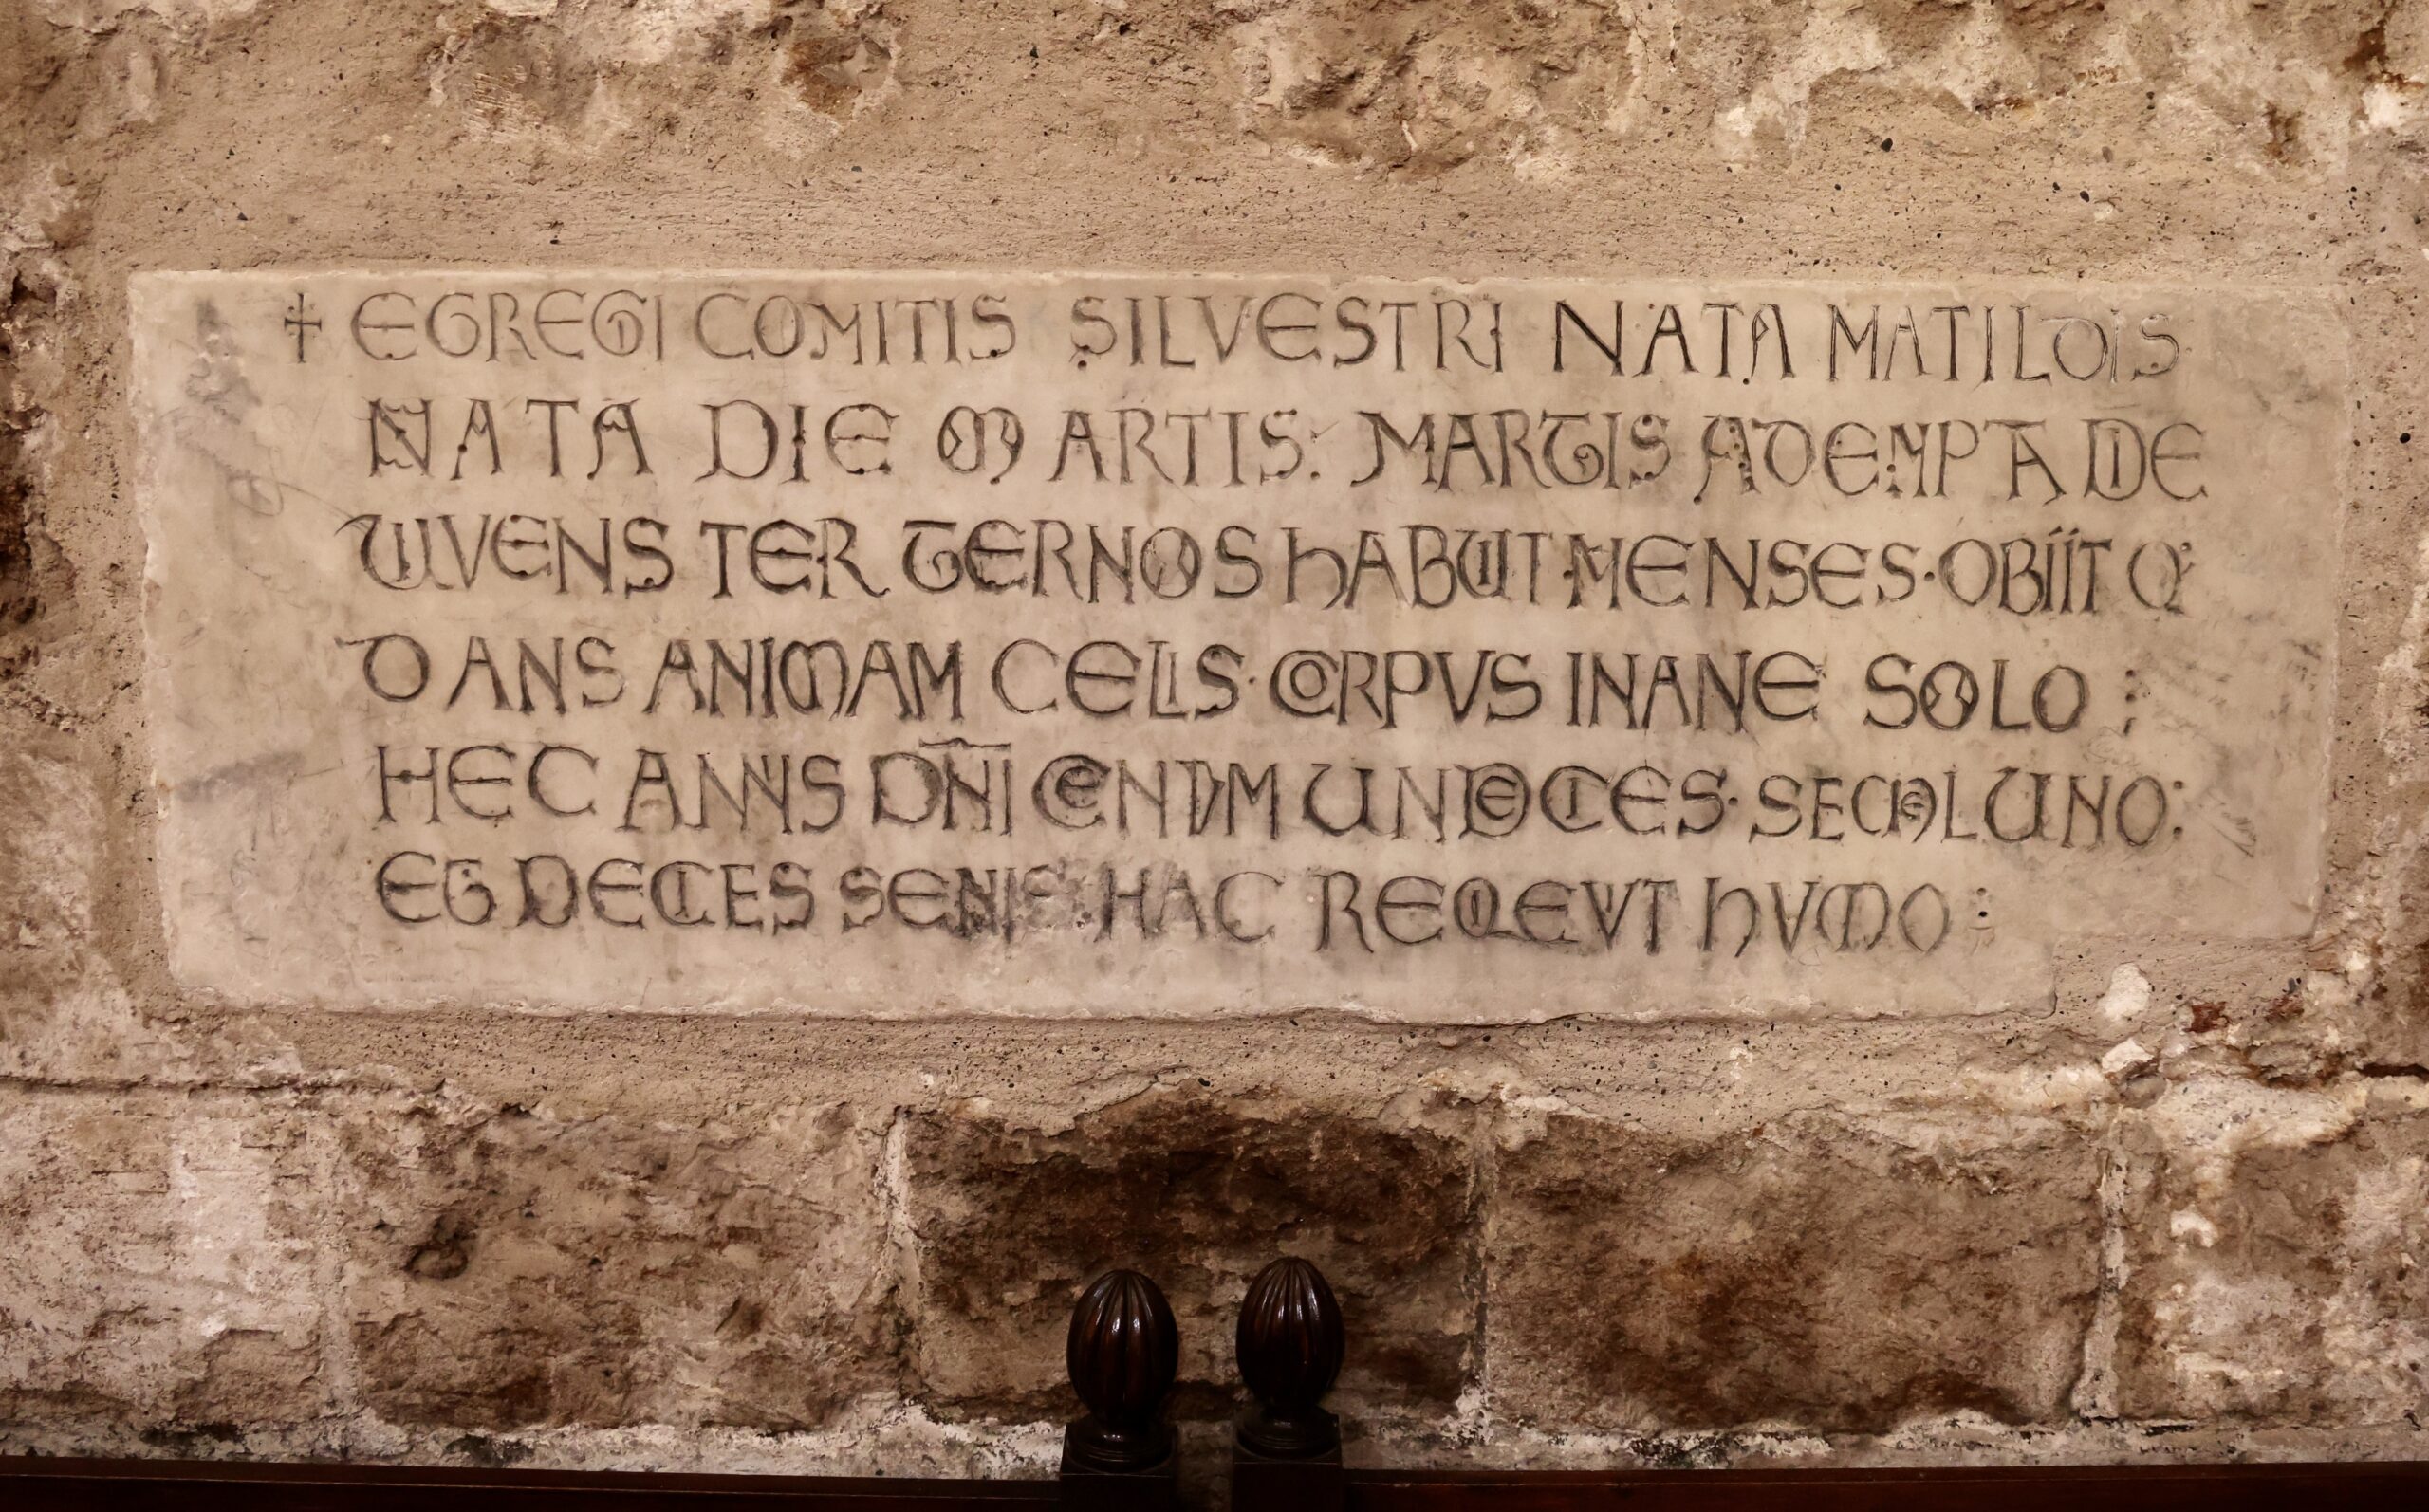 ✝ EGREGI COMITIS SILVESTRI NATA MATILDIS
NATA DIE MARTIS: MARTIS ADEMPTA DIE
VIVENS TER TERNOS HABUIT MENSES · OBIIT Q
DANS ANIMAM CELIS · CORPVS INANE SOLO :
HEC ANNIS DNI CENTVM UNDECIES · SEMEL UNO :
ET DECIES SENIS HAC REQIEVIT HVMO :